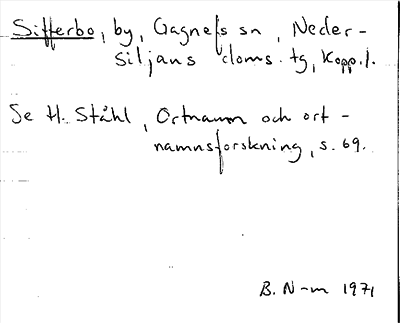 Sifferbo, by, Gagnefs sn, Neder-
Siljans doms. tg, Kopp. l.
Se H. Ståhl, Ortnamn och ort-
namnsforskning, s. 69.
B. N-m 1971